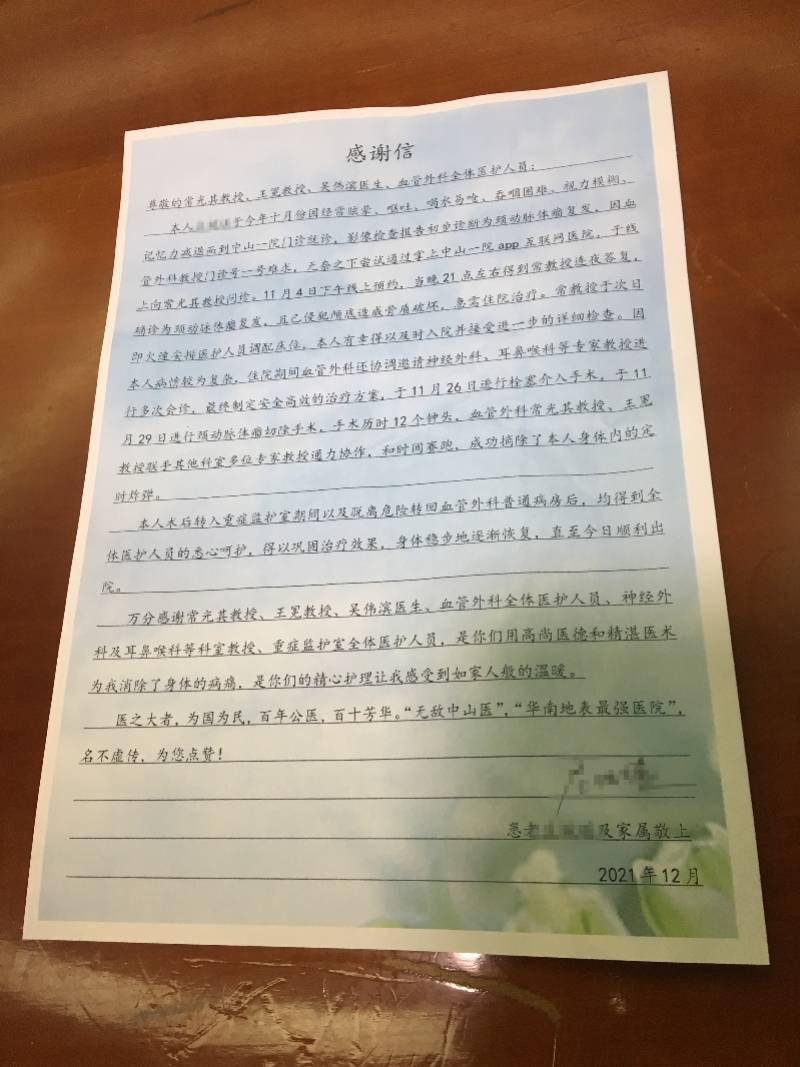 感谢信
尊敬的常光其教授、王冕教授、吴伟滨医生、血管外科全体医护人员：
本人于今年十月份因经常眩晕、呕吐、喝水易呛、吞咽困难、视力模糊、
记忆力减退而到中山一院门诊就诊，影像检查报告初步诊断为颈动脉体瘤复发，因血
管外科教授门诊号一号难求，无奈之下尝试通过掌上中山一院app互联网医院，于线
上向常光其教授问诊。11月4日下午线上预约，当晚21点左右得到常教授连夜答复，
确诊为颈动脉体瘤复发，且已侵犯颅底造成骨质破坏，急需住院治疗。常教授于次日
即火速安排医护人员调配床位，本人有幸得以及时入院并接受进一步的详细检查。因
本人病情较为复杂，住院期间血管外科还协调邀请神经外科、耳鼻喉科等专家教授进
行多次会诊，最终制定安全高效的治疗方案，于11月26日进行栓塞介入手术，于11
月29日进行颈动脉体瘤切除手术，手术历时12个钟头，血管外科常光其教授、王冕
教授联手其他科室多位专家教授通力协作，和时间赛跑，成功摘除了本人身体内的定
时炸弹。
本人术后转入重症监护室期间以及脱离危险转回血管外科普通病房后，均得到全
体医护人员的悉心呵护，得以巩固治疗效果，身体稳步地逐渐恢复，直至今日顺利出
院。
万分感谢常光其教授、王冕教授、吴伟滨医生、血管外科全体医护人员、神经外
科及耳鼻喉科等科室教授、重症监护室全体医护人员，是你们用高尚医德和精湛医术
为我消除了身体的病痛，是你们的精心护理让我感受到如家人般的温暖。
医之大者，为国为民，百年公医，百十芳华。“无敌中山医”，“华南地表最强医院”，
名不虚传，为您点赞！
患者及家属敬上
2021年12月